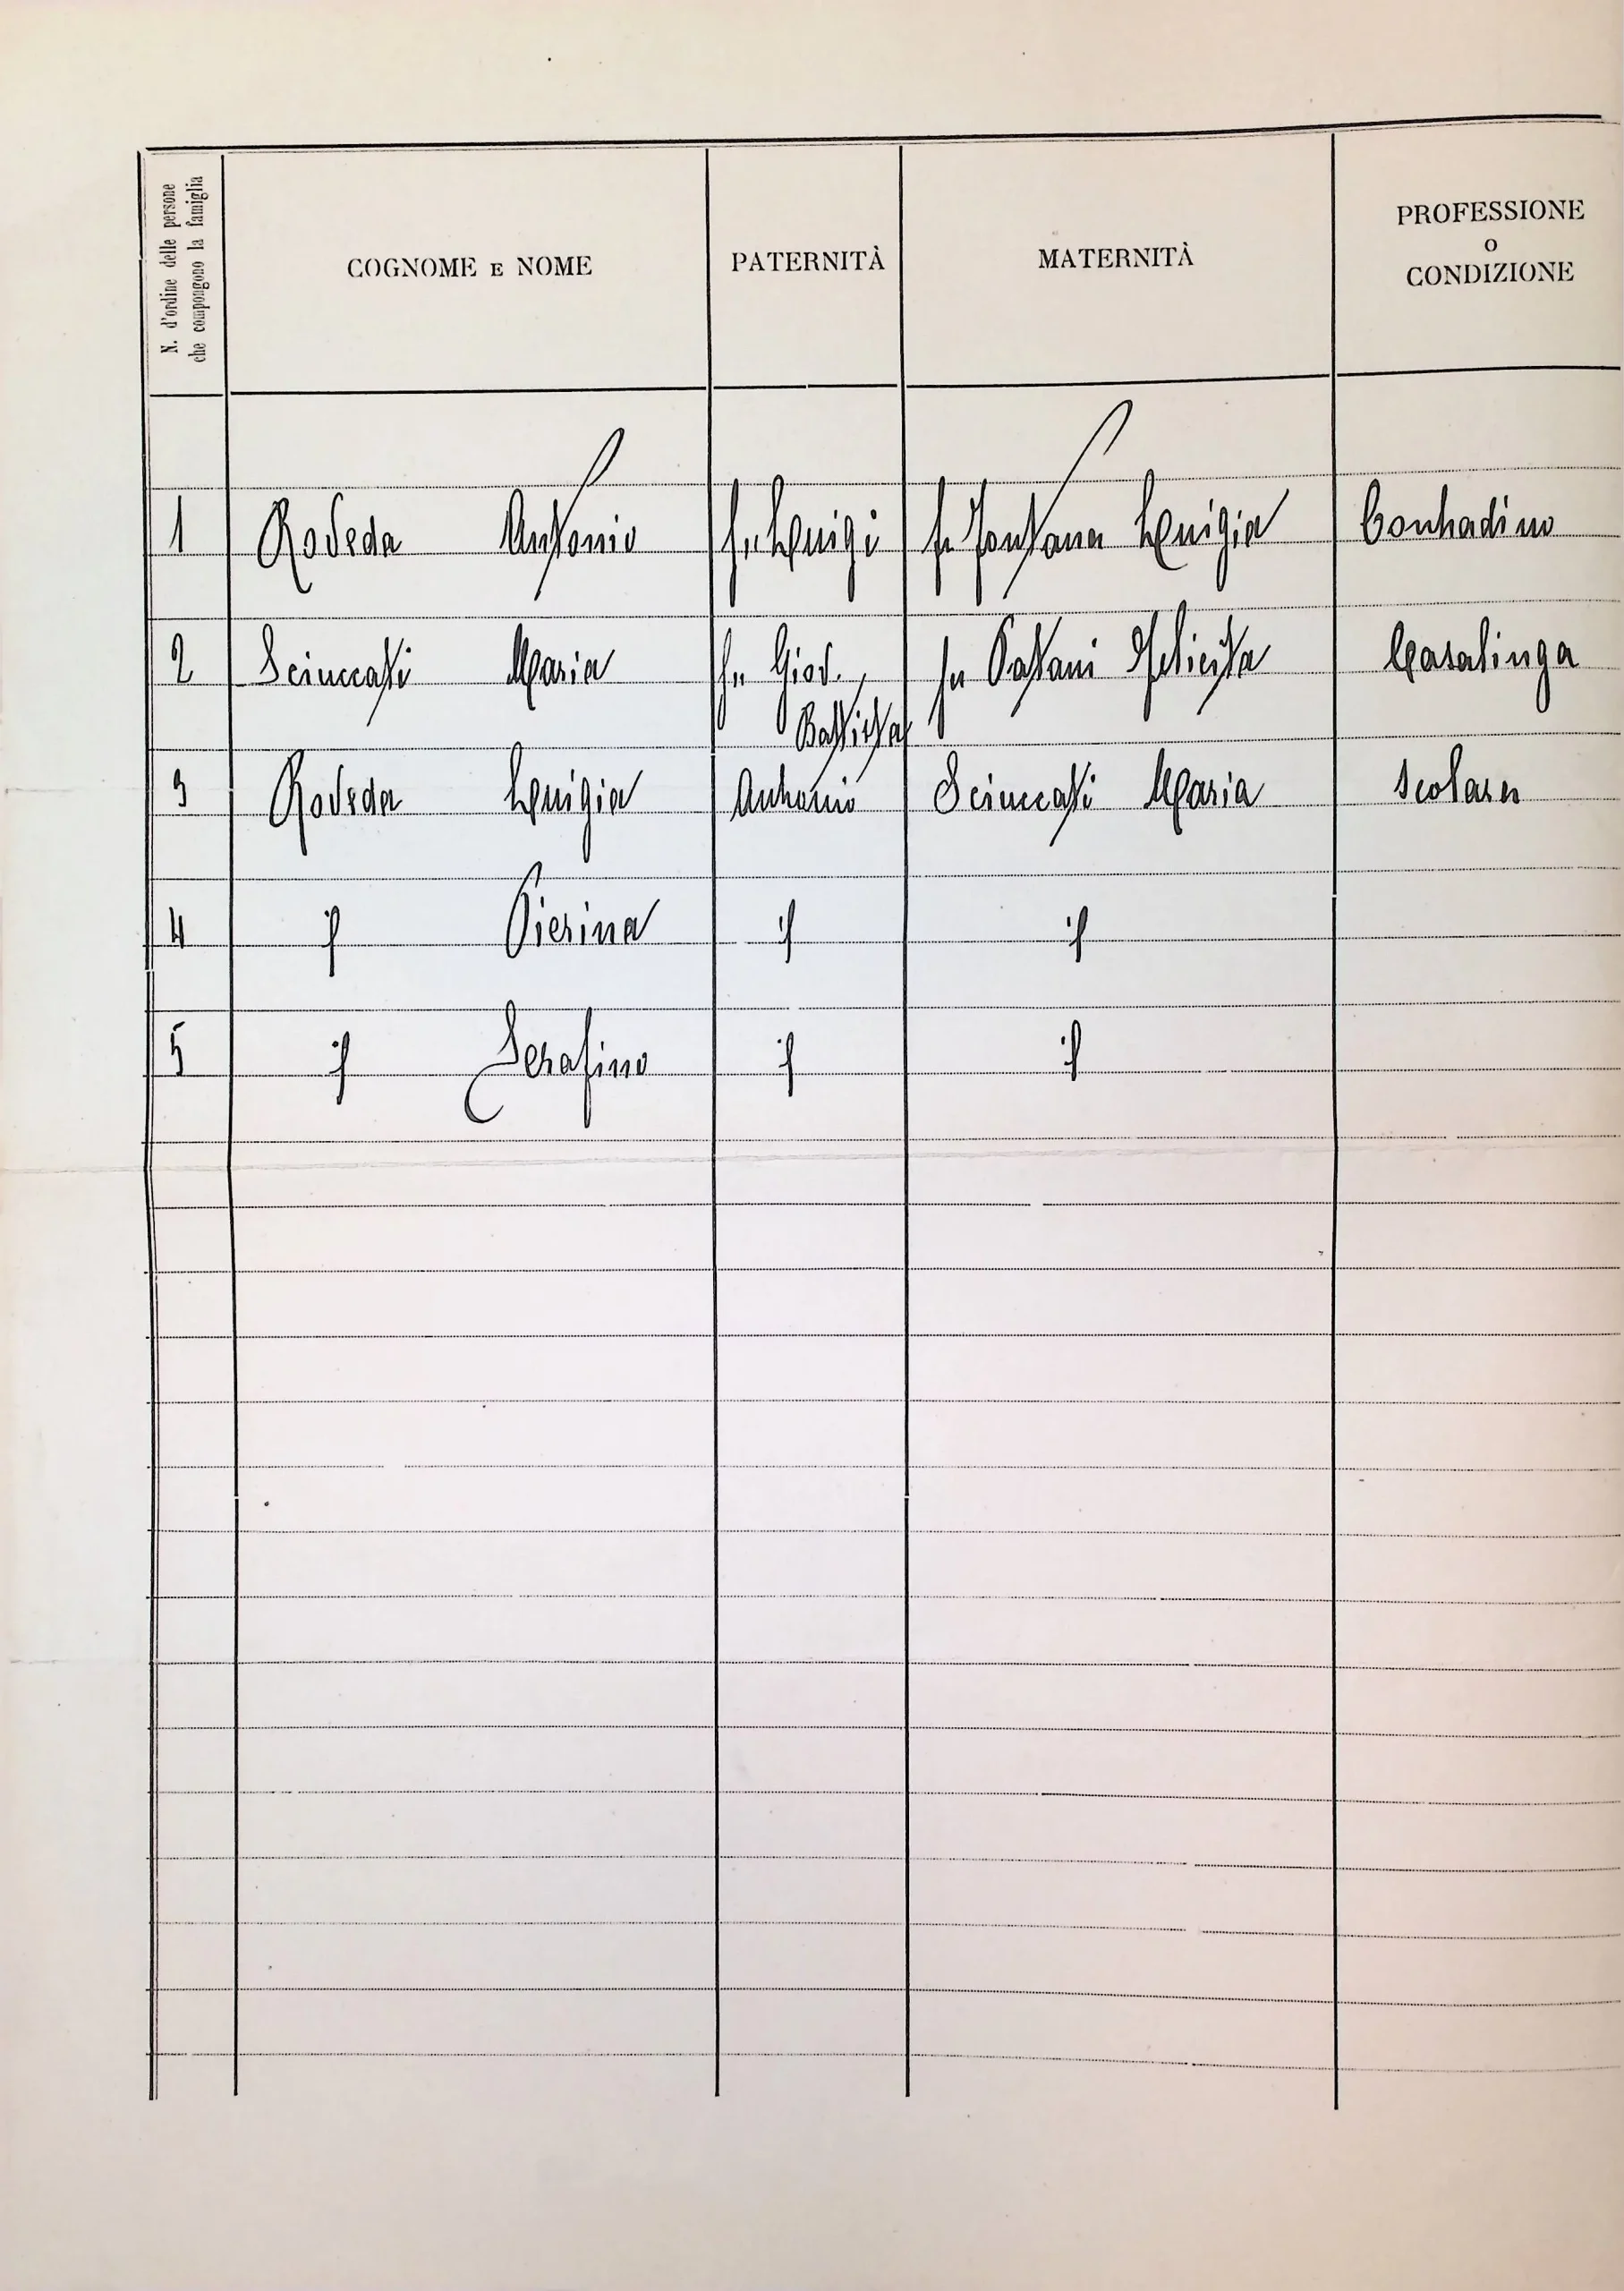 N. d'ordine delle persone
che compongono la famiglia
COGNOME E NOME
PATERNITÀ
MATERNITÀ
PROFESSIONE
O
CONDIZIONE
1 Roveda Antonio fu Luigi fu Fontana Luigia Contadino
2 Sciuccati Maria fu Giov. fu Patani Felicita Casalinga
Battista
3 Roveda Luigia Antonio Sciuccati Maria scolara
4 id Pierina id id
5 id Serafino id id